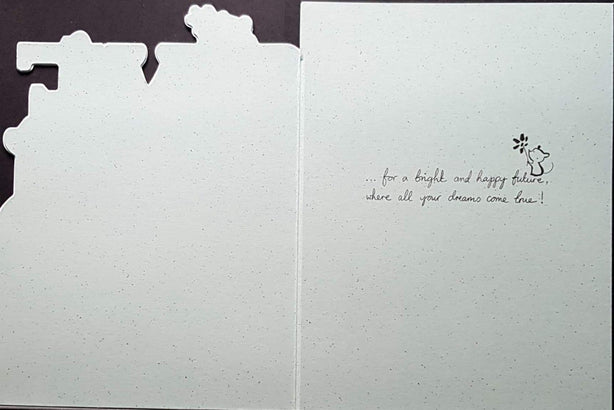 ... for a bright and happy future,
where all your dreams come true!